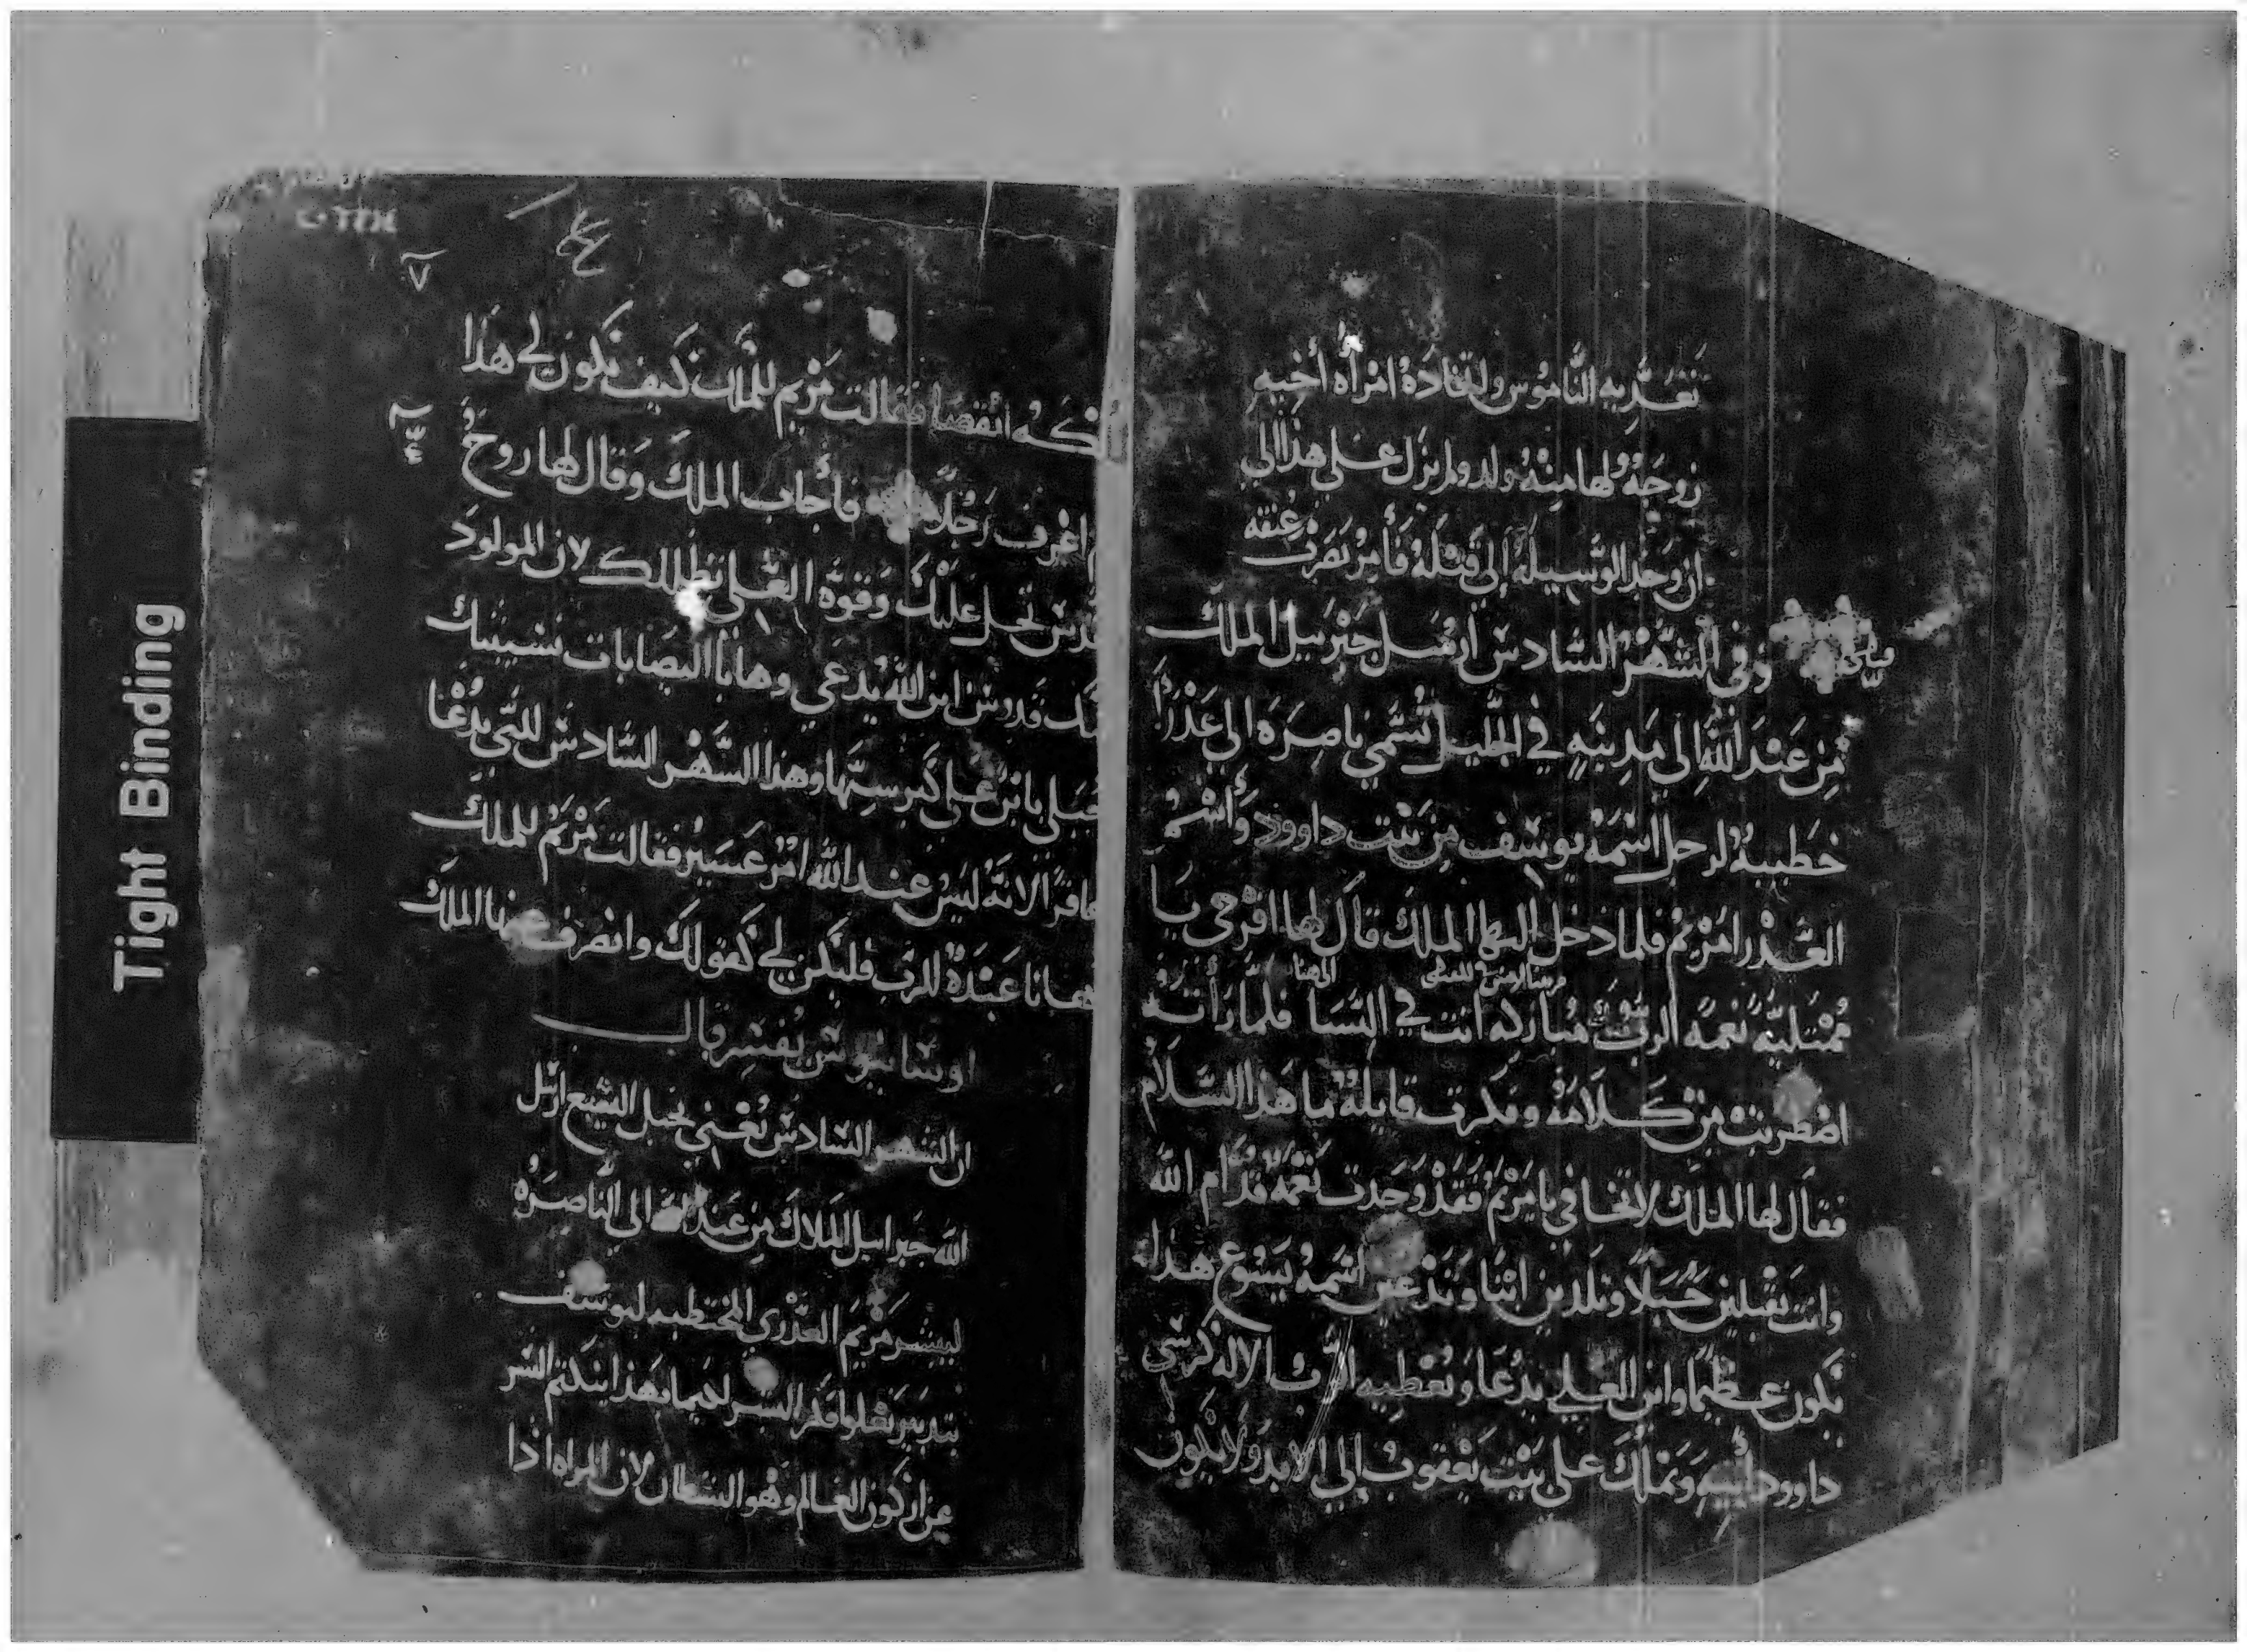 تعديه الناموس ولاتخاذه امرأة أخيه
زوجة ولها منه ولد ولم يزل على هذا الى
ان وجد الوسيلة إلى قتله فأمر بضرب عنقه
وفي الشهر السادس ارسل جبرييل الملك
من عند الله الى مدينه في الجليل تسمى ناصره الى عذرا
خطيبة لرجل اسمه يوسف من بيت داوود وأسم
العذرا مريم فلما دخل اليها الملك قال لها افرحي يا
ممتلية نعمة الرب مباركه انت في النسا فلما رأته
اضطربت من كلامه وفكرت قايلة ما هذا السلام
فقال لها الملك لا تخافي يا مريم فقد وجدت نعمة قدام الله
وانت تقبلين حبلا وتلدين ابنا وتدعين اسمه يسوع هذا
يكون عظيما وابن العلي يدعا ويعطيه الرب الاله كرسي
داوود أبيه ويملك على بيت يعقوب الى الابد ولا يكون
لملكه انقضا فقالت مريم للملك كيف يكون لي هذا
اعرف رجلا فأجاب الملك وقال لها روح
القدس تحل عليك وقوة العلي تظلك لان المولود
منك قدوس ابن الله يدعى وها اليصابات نسيبتك
حبلى بابن على كبر سنها وهذا الشهر السادس للتي تدعا
عاقرا لانه ليس عند الله امر عسير فقالت مريم للملك
ها نا عبدة للرب فليكن لي كقولك وانصرف عنها الملك
يفسر قال
ان الشهر السادس يعني بحبل اليشبع ارسل
الله جبراييل الملاك من عند الله الى الناصره
ليبشر مريم العذرى المخطبه ليوسف
السر
عن اركون العالم وهو الشيطان لان المراه اذا
Tight Binding